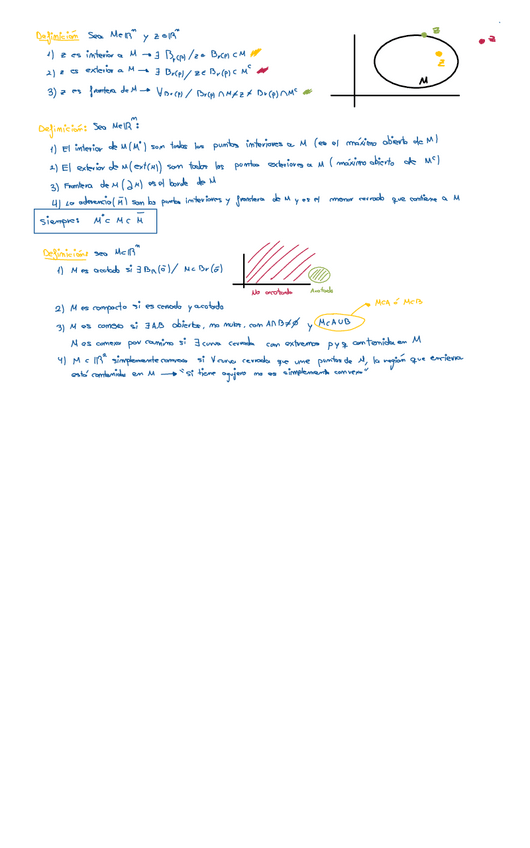 Definición: Sea M∈ℝⁿ y z∈ℝⁿ
z
1) z es interior a M → ∃ Br(p) / z∈ Br(p) ⊂ M
2) z es exterior a M → ∃ Br(p) / z∈ Br(p) ⊂ Mᶜ
3) z es frontera de M → ∀Br(p) / Br(p) ∩ M ≠ ∅ ≠ Br(p) ∩ Mᶜ
z
z
M
Definición: Sea M∈ℝⁿ:
1) El interior de M (M°) son todos los puntos interiores a M (es el máximo abierto de M)
2) El exterior de M (ext(M)) son todos los puntos exteriores a M (máximo abierto de Mᶜ)
3) Frontera de M (∂M) es el borde de M
4) La adherencia (M̄) son los puntos interiores y frontera de M y es el menor cerrado que contiene a M
Siempre: M° ⊂ M ⊂ M̄
Definición: sea M⊂ℝⁿ
1) M es acotado si ∃ BR(ō) / M⊂ Br(ō)
No acotado
Acotado
2) M es compacto si es cerrado y acotado
M⊂A ó M⊂B
3) M es conexo si ∃ A,B abiertos, no nulos, con A∩B≠∅ y M⊂A∪B
M es conexo por camino si ∃ curva cerrada con extremos p y q contenida en M
4) M ⊂ ℝⁿ simplemente conexo si ∀ curva cerrada que une puntos de M, la región que encierra
está contenida en M → "si tiene agujero no es simplemente convexo"